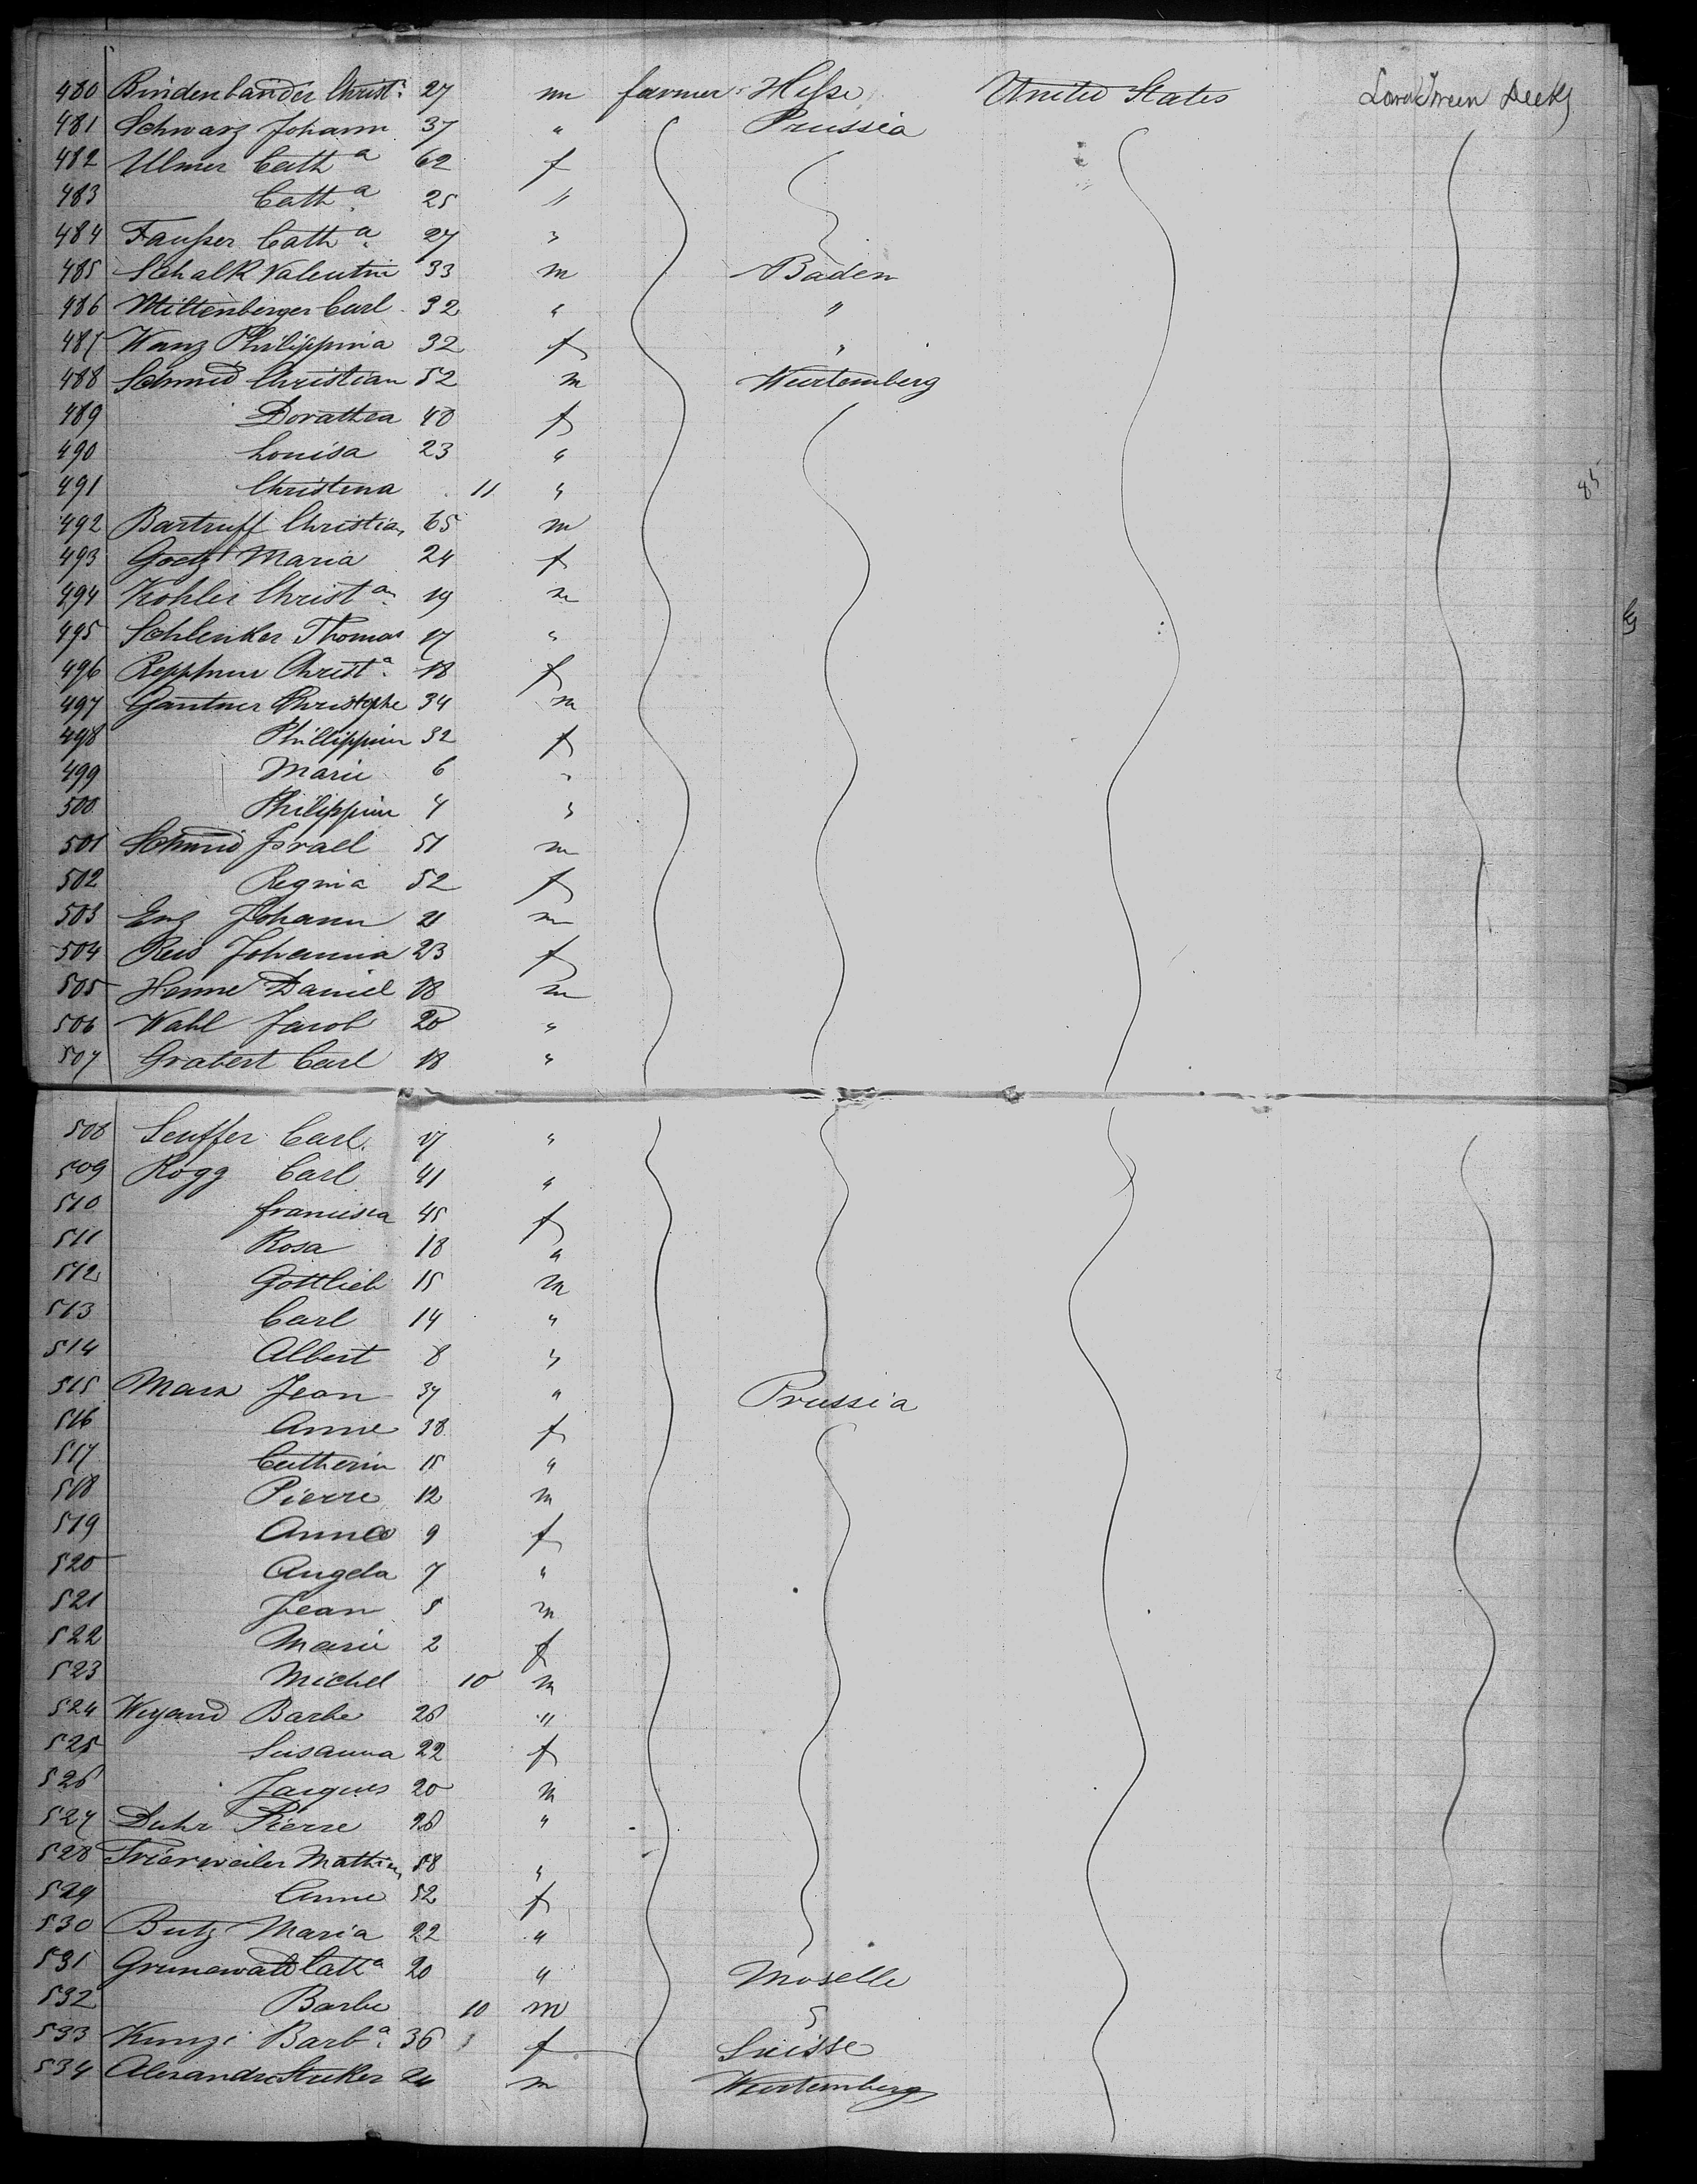 480 Rindenbander Christ. 27 m farmer Hesse United States Tween Decks
481 Schwarz Johann 37 " Prussia
482 Ulmer Cath a 62 f
483 Cath a 25 "
484 Fausser Cath a 27 "
485 Schalk Valentin 33 m Baden
486 Miltenberger Carl 32 " "
487 Wanz Philippina 32 f "
488 Schmid Christian 52 m Wurtemberg
489 Dorathea 48 f
490 Louisa 23 "
491 Christena 11 "
492 Bartruff Christian 65 m
493 Goetz Maria 24 f
494 Kohler Christ an 19 m
495 Schlenker Thomas 17 "
496 Christ a 18 f
497 Gantner Christophe 34 m
498 Phillippine 32 f
499 Marie 6 "
500 Philippine 4 "
501 Schmid Israel 51 m
502 Regina 52 f
503 Enz Johann 21 m
504 Reis Johanna 23 f
505 Henne Daniel 18 m
506 Wahl Jacob 20 "
507 Grabert Carl 18 "
508 Seuffer Carl 17 "
509 Rogg Carl 41 "
510 francisca 45 f
511 Rosa 18 "
512 Gottlieb 15 m
513 Carl 14 "
514 Albert 8 "
515 Marx Jean 37 " Prussia
516 Anne 38 f
517 Catherin 15 "
518 Pierre 12 m
519 Anna 9 f
520 Angela 7 "
521 Jean 5 m
522 Marie 2 f
523 Michel 10 m
524 Weyand Barbe 26 "
525 Susanna 22 f
526 Jacques 20 m
527 Duhr Pierre 28 "
528 Trierweiler Mathias 58 "
529 Anne 52 f
530 Butz Maria 22 "
531 Grunewald Cath a 20 " Moselle
532 Barbe 10 m "
533 Kunzi Barb a 36 f Suisse
534 Alexandre Stuker 24 m Wurtemberg